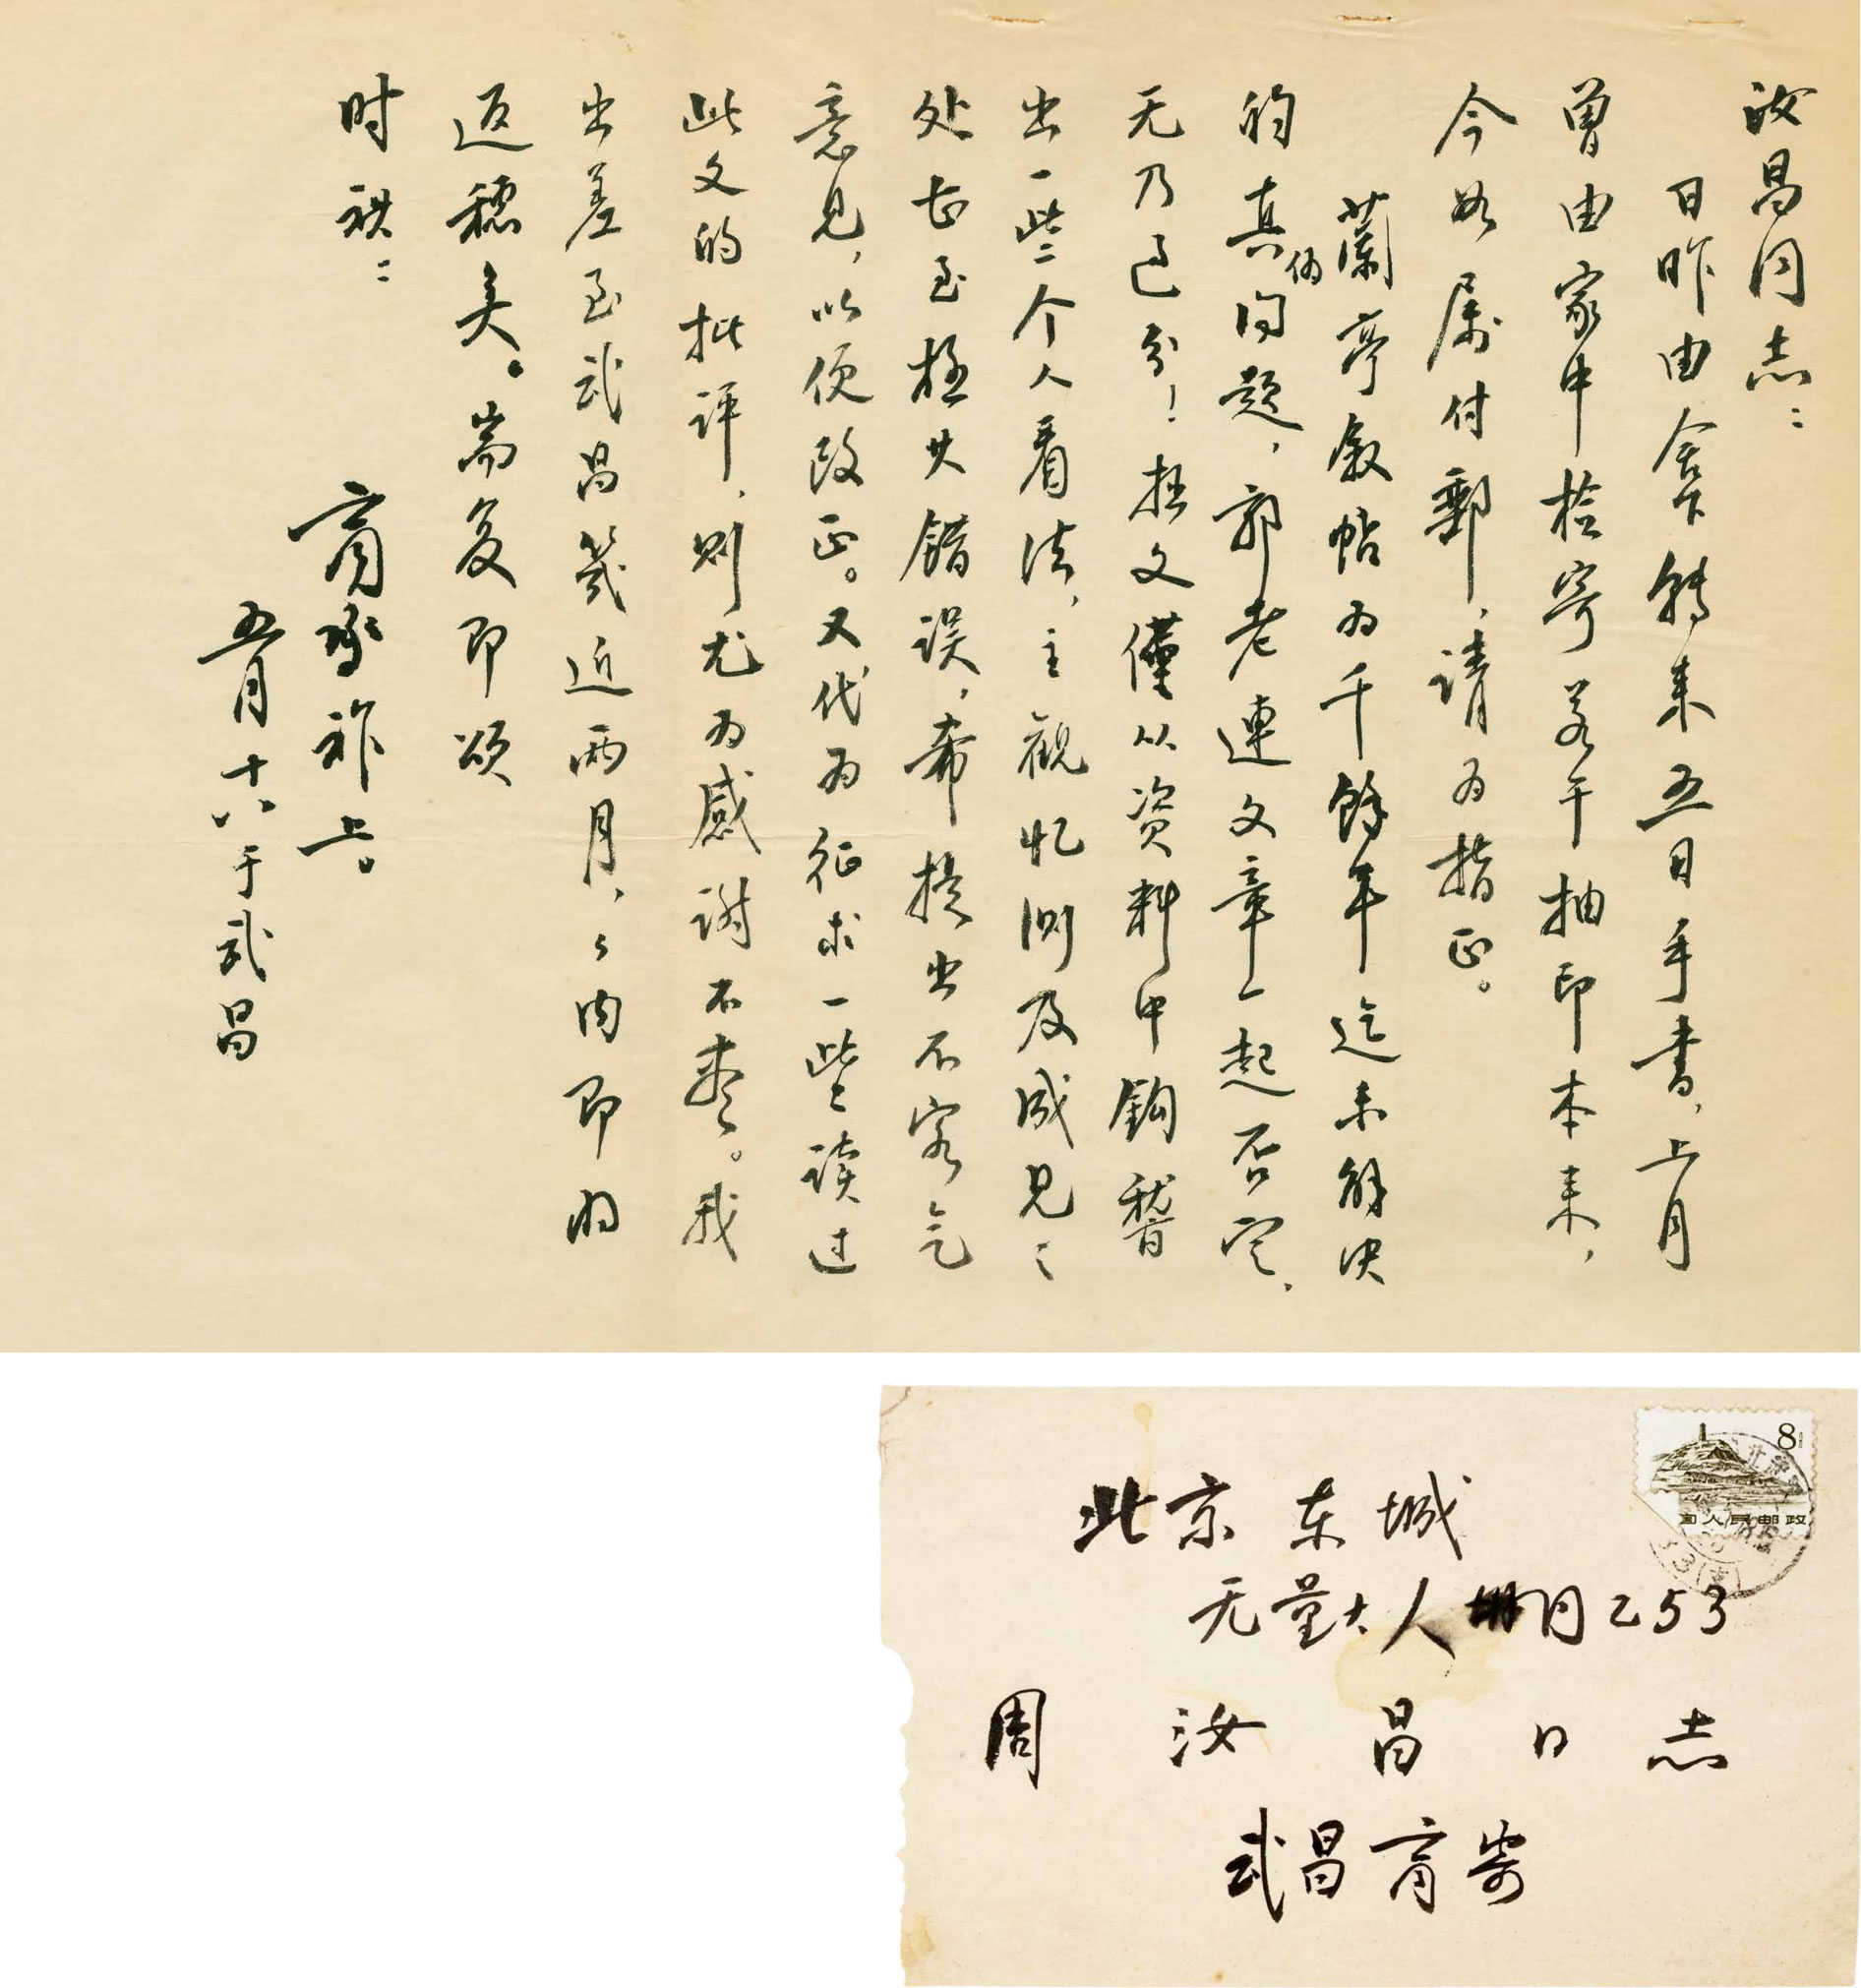 汝昌同志：
日昨由舍下转来五日手书，上月
曾由家中检寄若干抽印本来，
今如属付郵，请为指正。
蘭亭叙帖为千餘年迄未解决
的真伪问题，郭老連文章一起否定，
无乃过分！拙文僅从资料中鈎稽
出一些个人看法，主観忆测及成见之
处甚至极大错误，希提出不客气
意见，以便改正。又代为征求一些读过
此文的批评，则尤为感谢不尽。我
出差至武昌几近两月，々内即将
返穗矣。耑复即颂
时祺：
商承祚上。
五月十八于武昌
8
人民邮政
北京东城
无量大人胡同乙53
周汝昌同志
武昌商寄